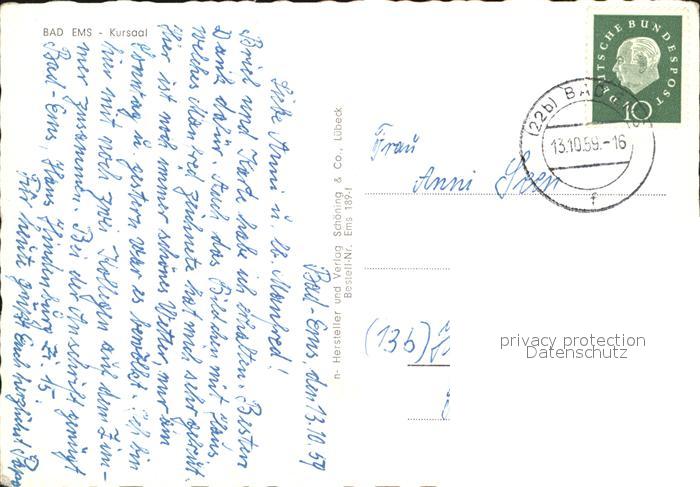 BAD EMS - Kursaal
Bad-Ems, den 13.10.59
Liebe Anni u. lb. Manfred!
Brief und Karte habe ich erhalten. Besten
Dank dafür. Auch das Bildchen mit Haus
welches Manfred zeichnete hat mich sehr gefreut.
Hier ist noch immer schönes Wetter, nur am
Sonntag u. gestern war es bewölkt. Ich bin
hier mit noch zwei Kollegen auf dem Zim-
mer zusammen. Bei der Anschrift genügt
Bad-Ems, Haus Hindenburg Zi. 15
Für heute grüßt Euch herzlichst Papa
n- Hersteller und Verlag Schöning & Co., Lübeck
Bestell-Nr. Ems 189-f
DEUTSCHE BUNDESPOST
10
(22b) BAD
13.10.59.-16
f
Frau
Anni
(13b)
privacy protection
Datenschutz